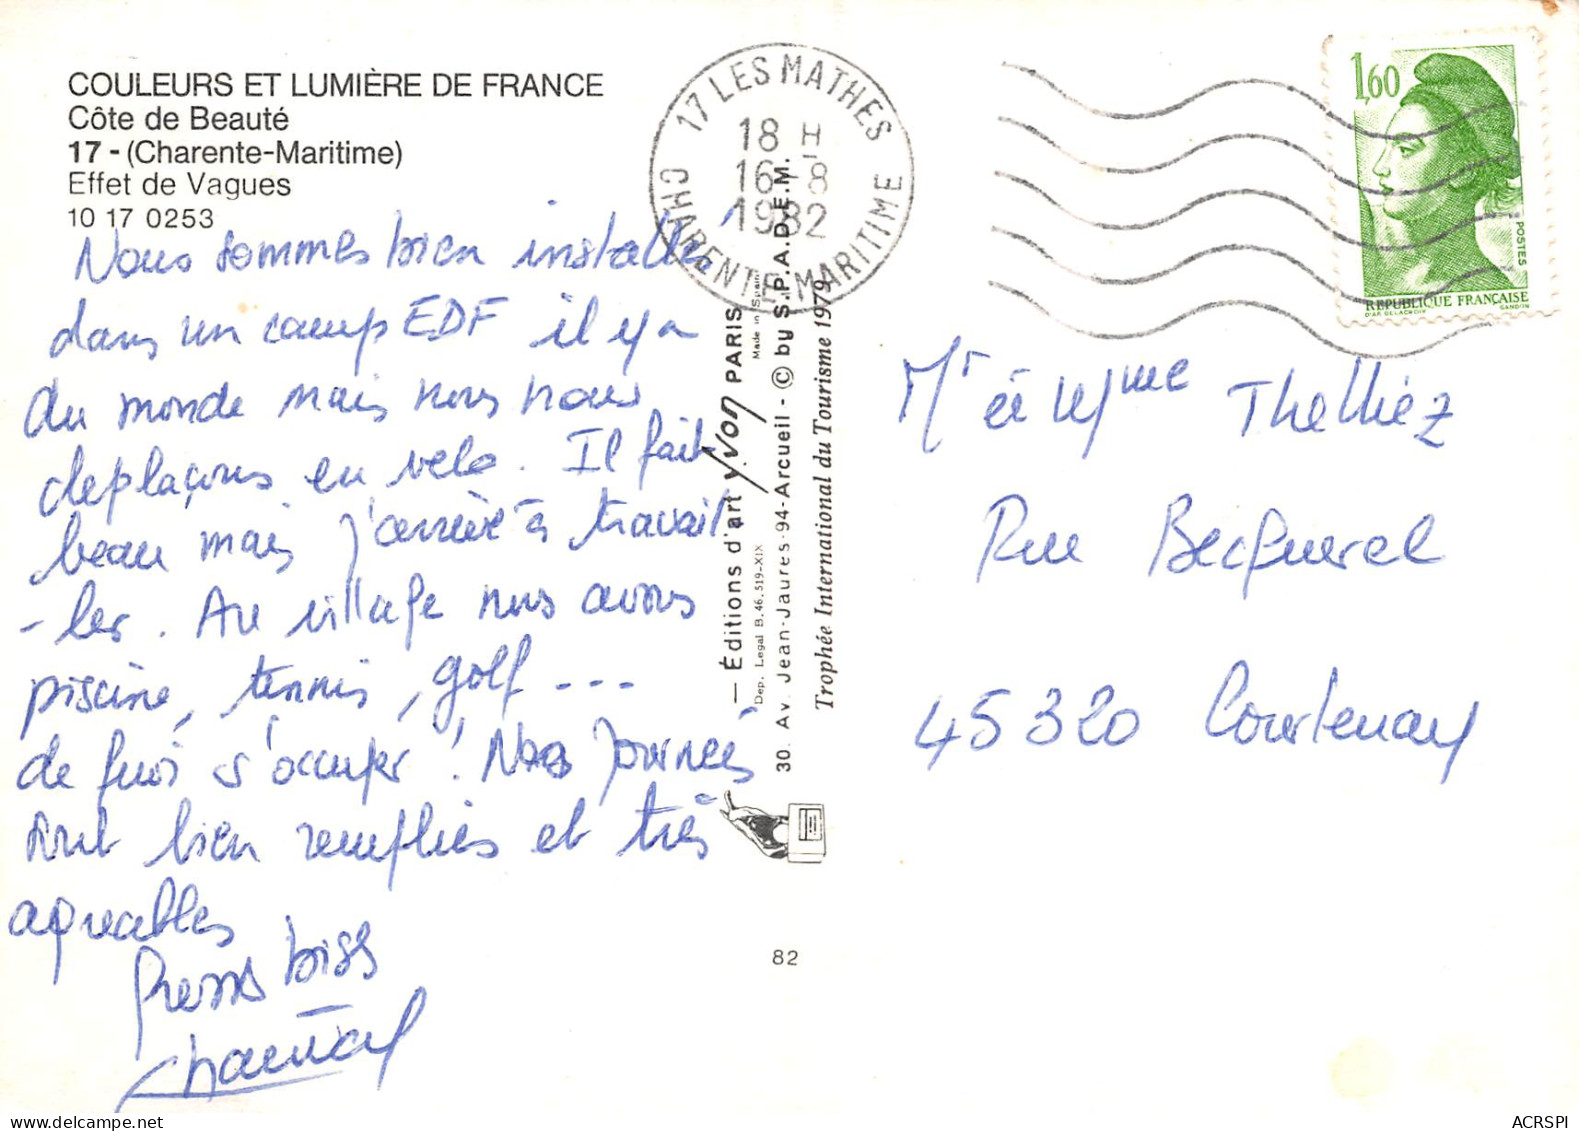 COULEURS ET LUMIÈRE DE FRANCE
Côte de Beauté
17 - (Charente-Maritime)
Effet de Vagues
10 17 0253
Nous sommes bien installés
dans un camp EDF il y a
du monde mais nous nous
deplaçons en velo. Il fait
beau mais j'arrive à travail
-ler. Au village nous avons
piscine, tennis, golf ---
de quoi s'occuper ! Nos journées
sont bien remplies et très
agreables
Grosses bises
Chantal
17 LES MATHES
CHARENTE MARITIME
18 H
16-8
1982
1,60
POSTES
REPUBLIQUE FRANÇAISE
D'AP. DELACROIX GANDON
Mr et Mme Thelliez
Rue Becquerel
45320 Courtenay
— Éditions d'art yvon PARIS
Made in Spain
Dep. Legal B. 46.519-XIX
30. Av. Jean-Jaures-94-Arcueil - © by S.P.A.D.E.M.
Trophée International du Tourisme 1979
82
ACRSPI